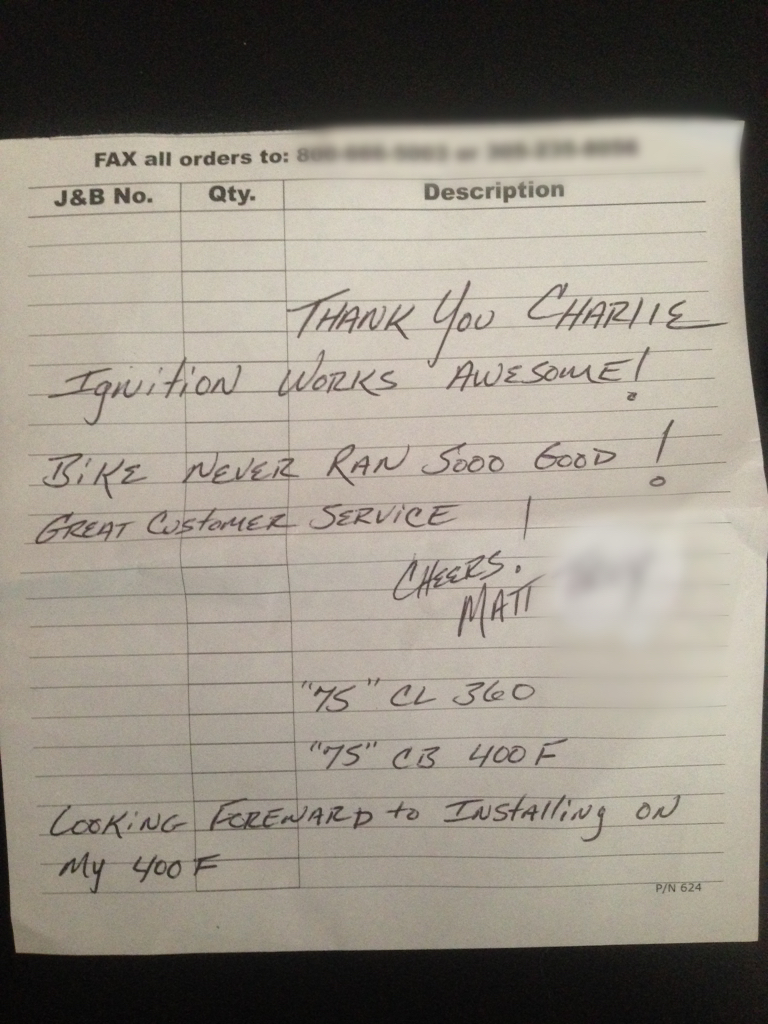 FAX all orders to:
J&B No. Qty. Description
THANK YOU CHARLIE
IGNITION WORKS AWESOME!
BIKE NEVER RAN SOOO GOOD!
GREAT CUSTOMER SERVICE!
CHEERS.
MATT
"75" CL 360
"75" CB 400F
LOOKING FOREWARD to INSTALLING ON
My 400F
P/N 624